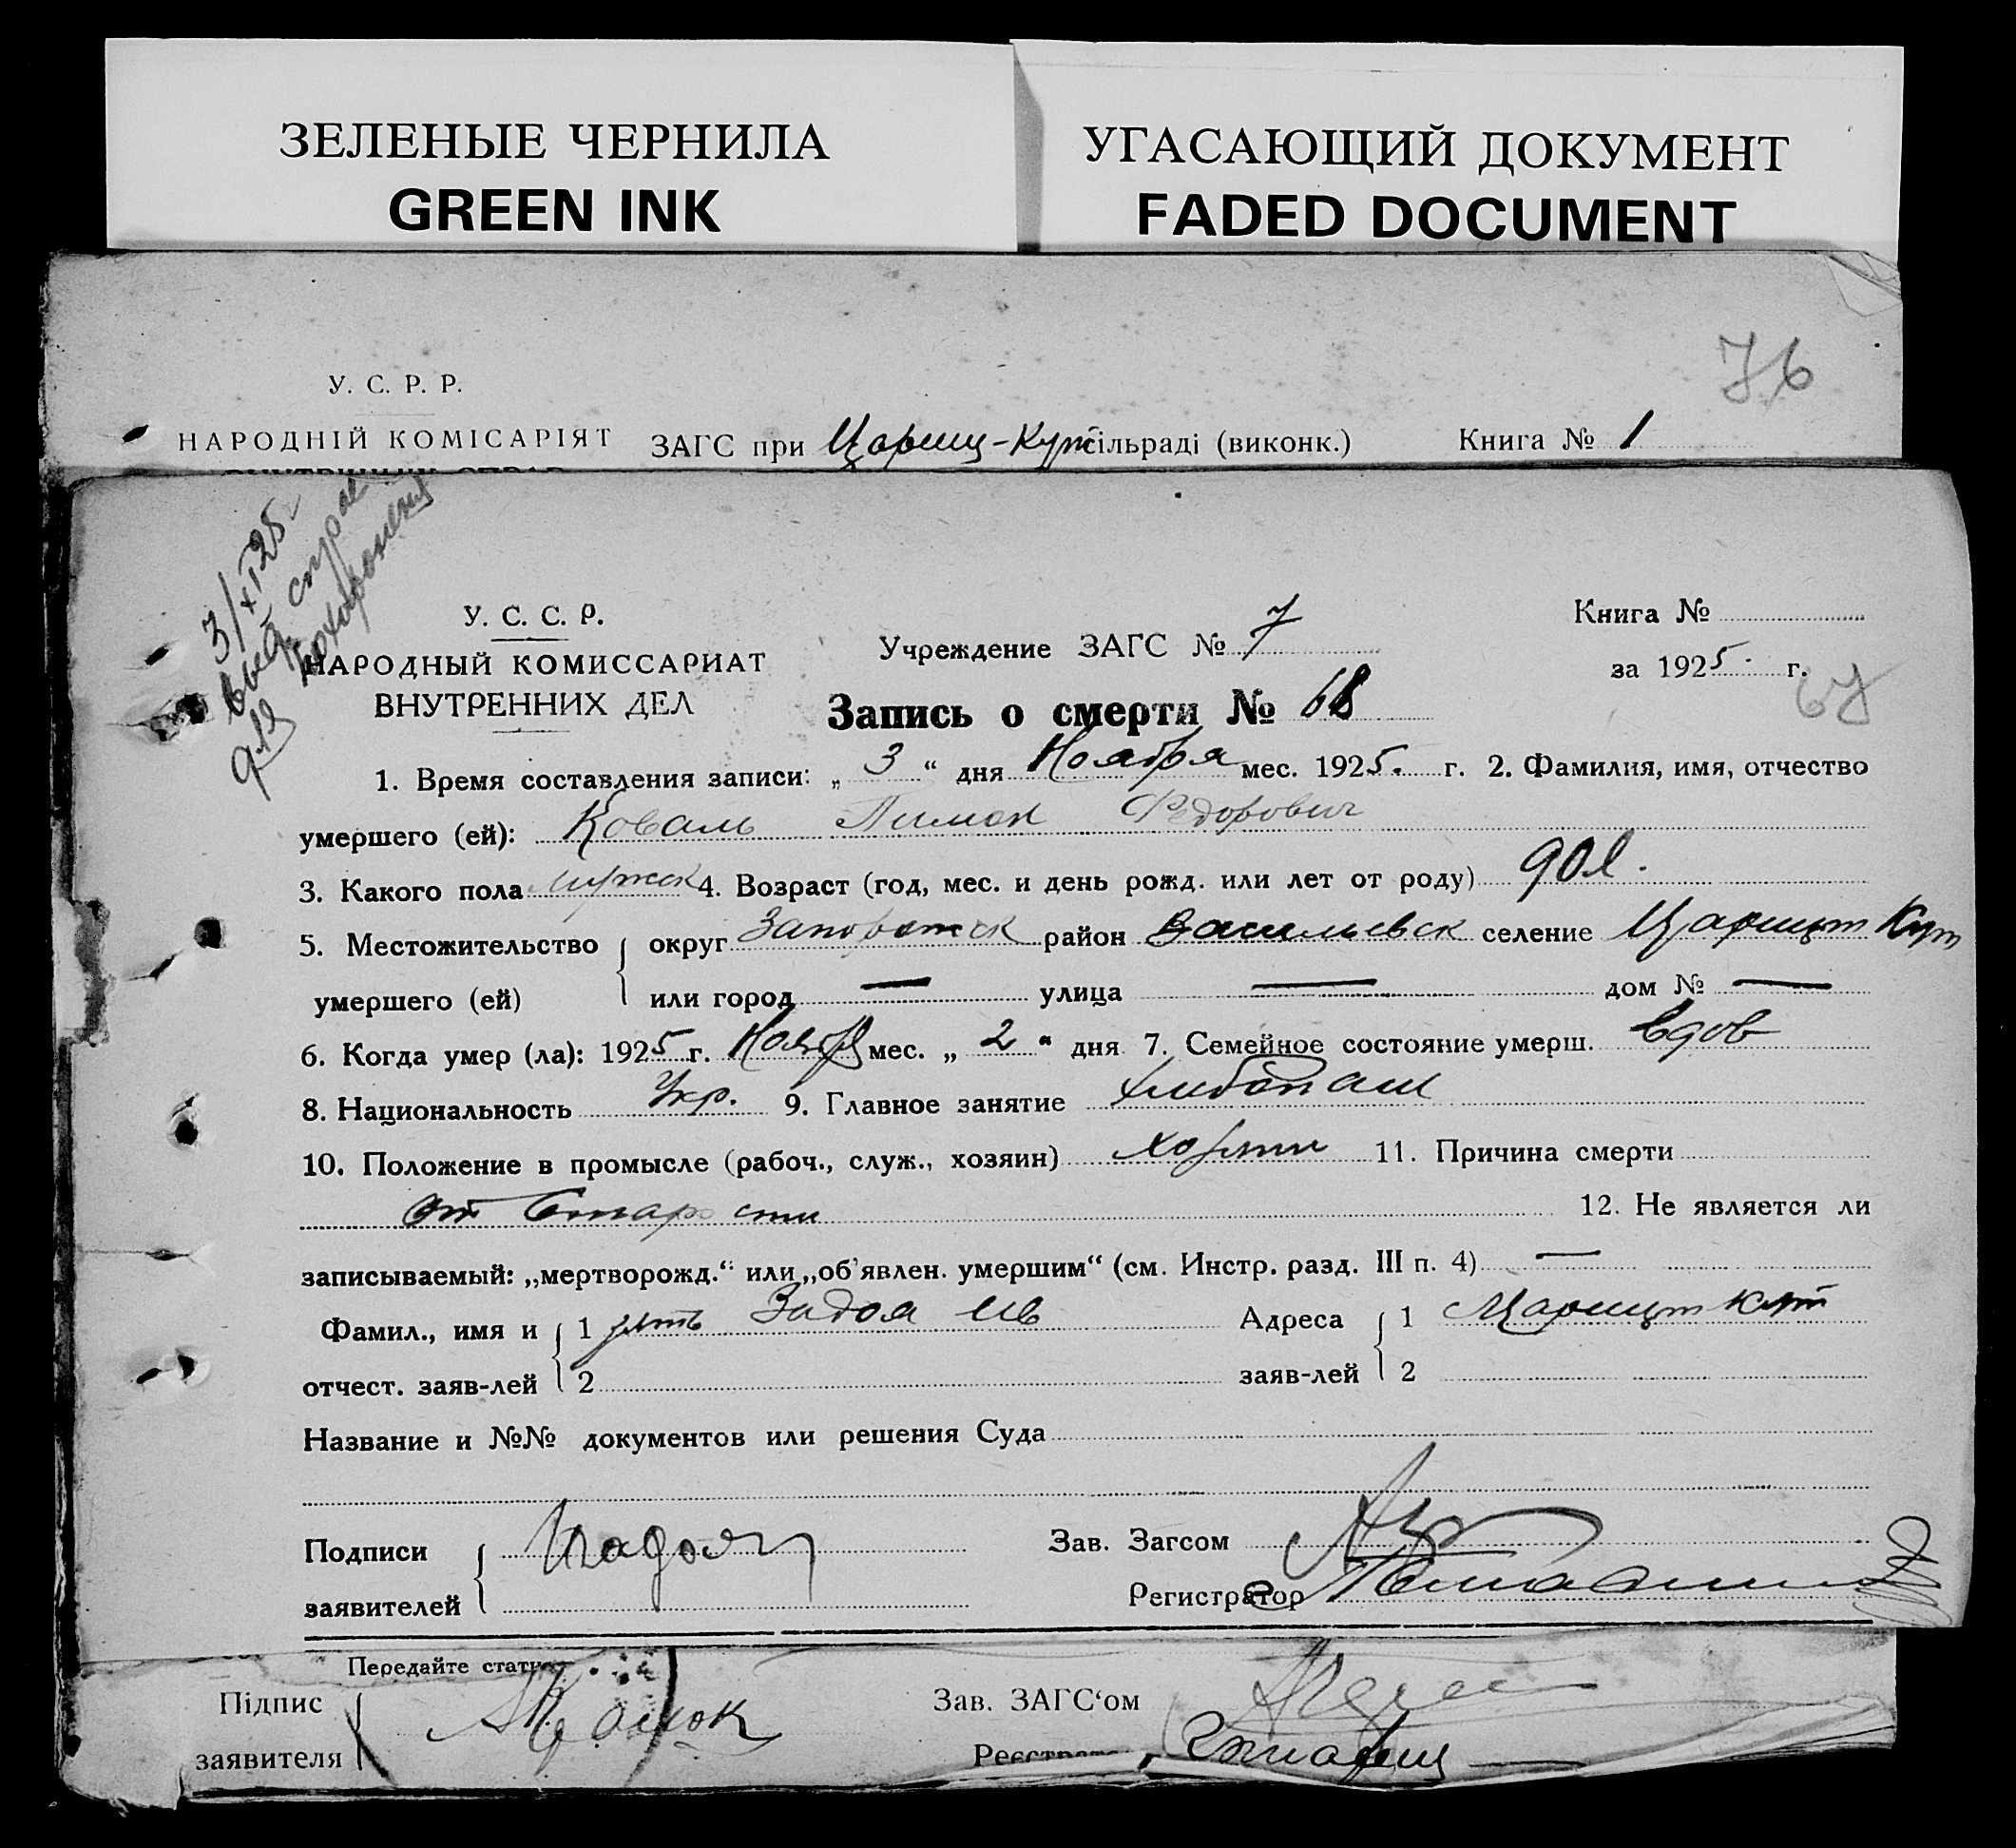 ЗЕЛЕНЫЕ ЧЕРНИЛА
GREEN INK
УГАСАЮЩИЙ ДОКУМЕНТ
FADED DOCUMENT
76
У. С. Р. Р.
НАРОДНІЙ КОМІСАРІЯТ ЗАГС при Цариц-Кут сільраді (виконк.) Книга № 1
3/XI 25
для похоронения
У. С. С. Р.
НАРОДНЫЙ КОМИССАРИАТ
ВНУТРЕННИХ ДЕЛ
Учреждение ЗАГС № 7
Книга №
за 1925. г.
67
Запись о смерти № 68
1. Время составления записи: „ 3 “ дня Ноября мес. 1925. г. 2. Фамилия, имя, отчество
умершего (ей): Коваль Пимон Федорович
3. Какого пола мужск 4. Возраст (год, мес. и день рожд. или лет от роду) 90 л.
5. Местожительство умершего (ей) { округ Запорожск район Васильевск селение Царицын Кут
или город — улица — дом № —
6. Когда умер (ла): 1925 г. Нояб мес. „ 2 “ дня 7. Семейное состояние умерш. вдов
8. Национальность Укр. 9. Главное занятие хлибопаш
10. Положение в промысле (рабоч., служ., хозяин) 11. Причина смерти
от старости 12. Не является ли
записываемый: „мертворожд.“ или „об'явлен. умершим“ (см. Инстр. разд. III п. 4) —
Фамил., имя и отчест. заяв-лей { 1 Задоя Ив Адреса заяв-лей { 1 Царицын Кут
2 2
Название и №№ документов или решения Суда
Подписи заявителей { Зав. Загсом
Регистратор
Передайте стати
Підпис заявителя { Зав. ЗАГС‘ом